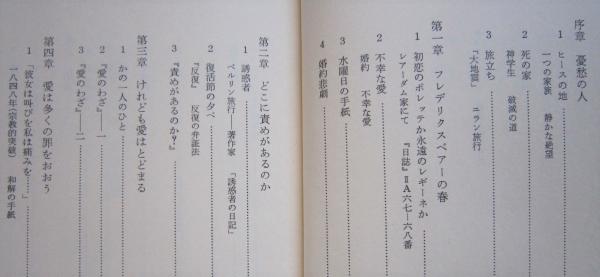 序章 憂愁の人
1 ヒースの地
一つの家族 静かな絶望
2 死の家
神学生 破滅の道
3 旅立ち
「大地震」 ユラン旅行
第一章 フレデリクスベアーの春
1 初恋のボレッテか永遠のレギーネか
レアーダム家にて 『日誌』ⅡA六七―六八番
2 不幸な愛
婚約 不幸な愛
3 水曜日の手紙
4 婚約悲劇
第二章 どこに責めがあるのか
1 誘惑者
ベルリン旅行――著作家 「誘惑者の日記」
2 復活節の夕べ
『反復』 反復の弁証法
3 『責めがあるのか？』
第三章 けれども愛はとどまる
1 かの一人のひと
2 『愛のわざ』――一
3 『愛のわざ』――二
第四章 愛は多くの罪をおおう
1 「彼女は叫びを私は痛みを……」
一八四八年（宗教的突破） 和解の手紙